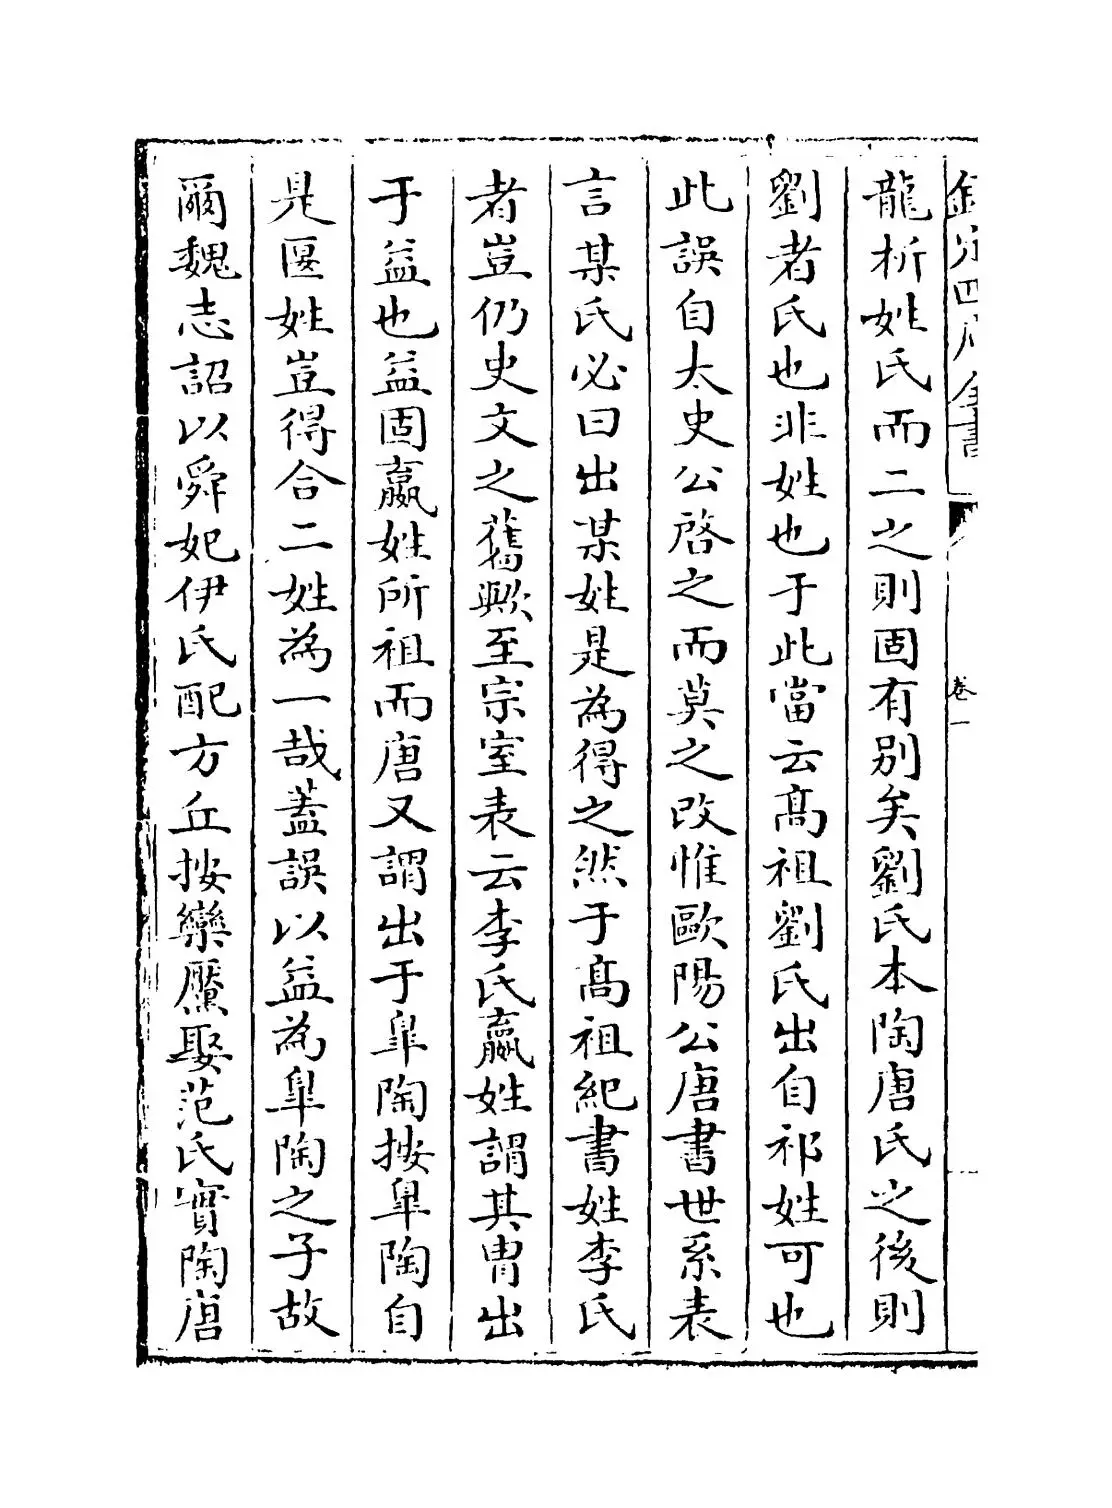 欽定四庫全書
卷一
龍析姓氏而二之則固有别矣劉氏本陶唐氏之後則
劉者氏也非姓也于此當云髙祖劉氏出自祁姓可也
此誤自太史公啓之而莫之改惟歐陽公唐書世系表
言某氏必曰出某姓是為得之然于髙祖紀書姓李氏
者豈仍史文之舊歟至宗室表云李氏嬴姓謂其胄出
于益也益固嬴姓所祖而唐又謂出于臯陶按臯陶自
是偃姓豈得合二姓為一哉蓋誤以益為臯陶之子故
爾魏志詔以舜妃伊氏配方丘按欒黶娶范氏實陶唐